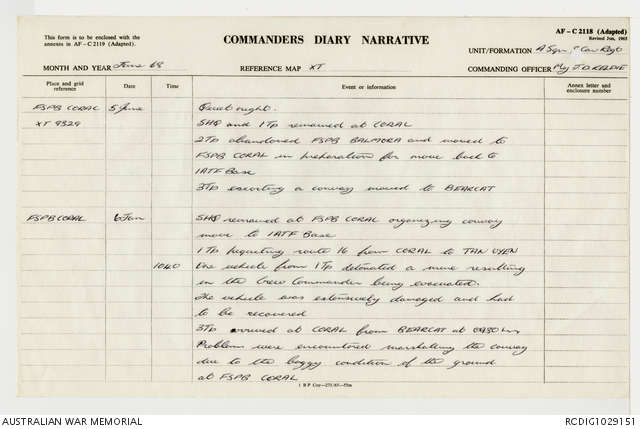 This form is to be enclosed with the
annexes in AF – C 2219 (Adapted).
COMMANDERS DIARY NARRATIVE
AF – C 2118 (Adapted)
Revised Jun, 1965
UNIT/FORMATION A Sqn, Cav Regt
MONTH AND YEAR June 68
REFERENCE MAP XT
COMMANDING OFFICER Maj J.D. KEADIE
Place and grid
reference
Date
Time
Event or information
Annex letter and
enclosure number
FSPB CORAL 5 June Quiet night.
XT 9329 SHQ and 1Tp remained at CORAL
2Tp abandoned FSPB BALMORA and moved to
FSPB CORAL in preparation for move back to
1ATF Base
3Tp escorting a convoy moved to BEARCAT
FSPB CORAL 6 Jun SHQ remained at FSPB CORAL organizing convoy
move to 1ATF Base
1 Tp piqueting route 16 from CORAL to TAN UYEN
1040 One vehicle from 1Tp detonated a mine resulting
in the Crew Commander being evacuated.
The vehicle was extensively damaged and had
to be recovered
3Tp arrived at CORAL from BEARCAT at hrs
Problems were encountered marshalling the convoy
due to the boggy condition of the ground
at FSPB CORAL
AUSTRALIAN WAR MEMORIAL
RCDIG1029151